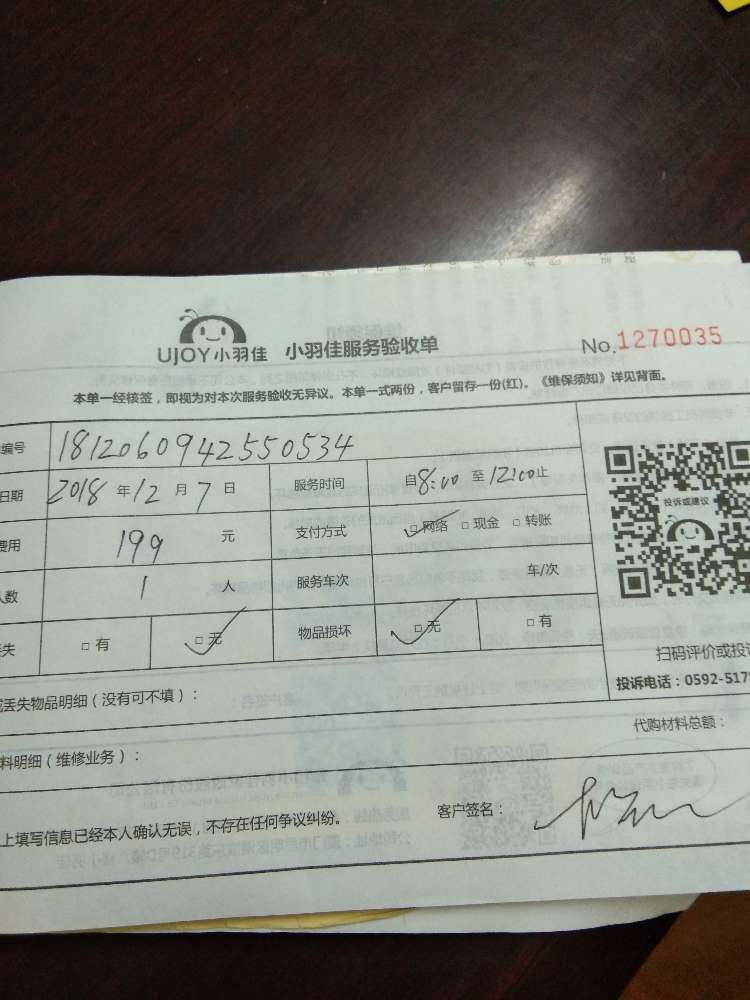 UJOY小羽佳 小羽佳服务验收单 No.1270035
本单一经核签，即视为对本次服务验收无异议。本单一式两份，客户留存一份(红)。《维保须知》详见背面。
编号 1812060942550534
日期 2018 年 12 月 7 日 服务时间 自 8:00 至 12:00 止
费用 199 元 支付方式 □网络 □现金 □转账
人数 1 人 服务车次 车/次
丢失 □有 □无 物品损坏 □无 □有
投诉或建议
扫码评价或投诉
投诉电话：0592-517
或丢失物品明细（没有可不填）：
代购材料总额：
料明细（维修业务）：
上填写信息已经本人确认无误，不存在任何争议纠纷。 客户签名：